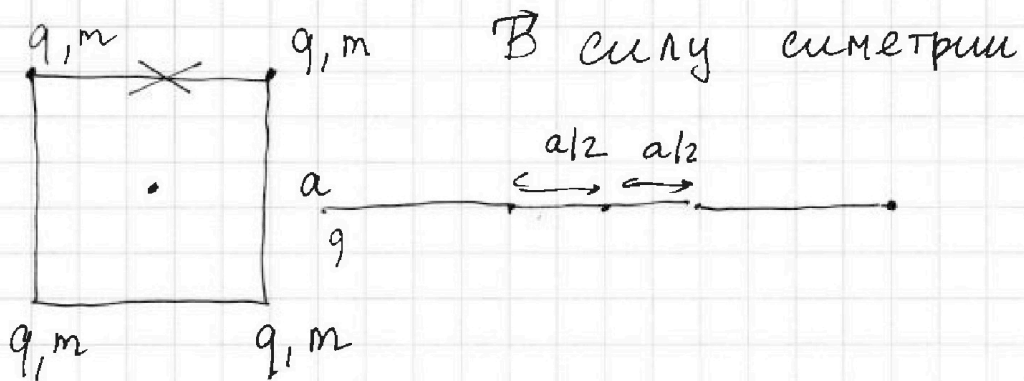 q, m q, m В силу симетрии
a/2 a/2
a
q
q, m q, m